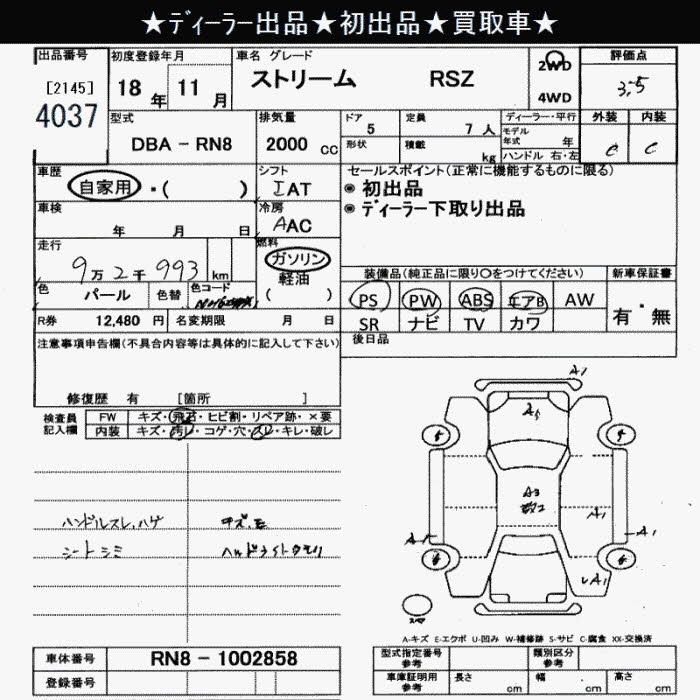 ★ディーラー出品★初出品★買取車★
出品番号 初度登録年月 車名 グレード 評価点
[2145] 18年 11月 ストリーム RSZ 2WD 3.5
4037 4WD
型式 排気量 ドア 定員 ディーラー・平行 外装 内装
DBA-RN8 2000cc 5 7人 モデル年式 年 C C
形状 積載 kg ハンドル 右・左
車歴 シフト セールスポイント(正常に機能するものに限る)
自家用・( ) IAT ●初出品
車検 冷房 ●ディーラー下取り出品
年 月 日 AAC
走行 燃料
9万2千993km ガソリン 装備品(純正品に限り○をつけてください) 新車保証書
色 パール 色替 色コード 軽油 ( ) PS PW ABS エアB AW 有・無
R券 12,480円 名変期限 月 日 SR ナビ TV カワ
注意事項申告欄(不具合内容等は具体的に記入して下さい) 後日品
修復歴 有 [箇所 ]
検査員記入欄 FW キズ・飛石・ヒビ割・リペア跡・×要
内装 キズ・汚レ・コゲ・穴・スレ・キレ・破レ
A1
A3
A1
A1
A1
ハンドルスレ、ハゲ
シートシミ ヘッドライトクモリ
A1
スペア
A-キズ E-エクボ U-凹み W-補修跡 S-サビ C-腐食 XX-交換済
車体番号 RN8-1002858 型式指定番号 参考 類別区分 参考
登録番号 車庫証明用 参考 長さ cm 幅 cm 高さ cm